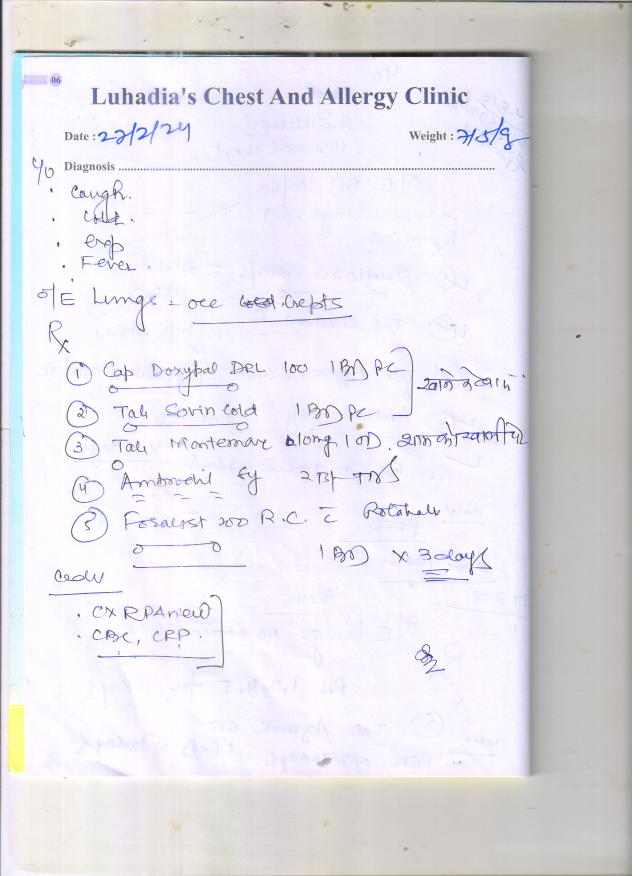 06
Luhadia's Chest And Allergy Clinic
Date : 27/2/24 Weight :
Diagnosis
. Cough.
. Cold.
. Exp
. Fever
O/E Lungs - occ Crepts
Rx
① Cap Doxypal DRL 100 1BD PC
② Tab Sovin Cold 1BD PC
③ Tab Montemac Long 1 OD. शाम को
④ Ambrodil Sy 2 Bf TDS
⑤ 200 R.C. c̄ Rotahaler
1BD x 3 days
adv
. CXR PA view
. CBC, CRP.